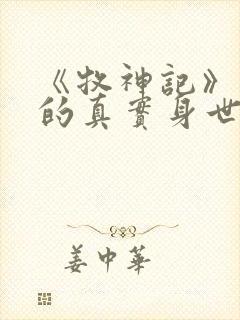 《牧神記》
的真實身世
姜中華